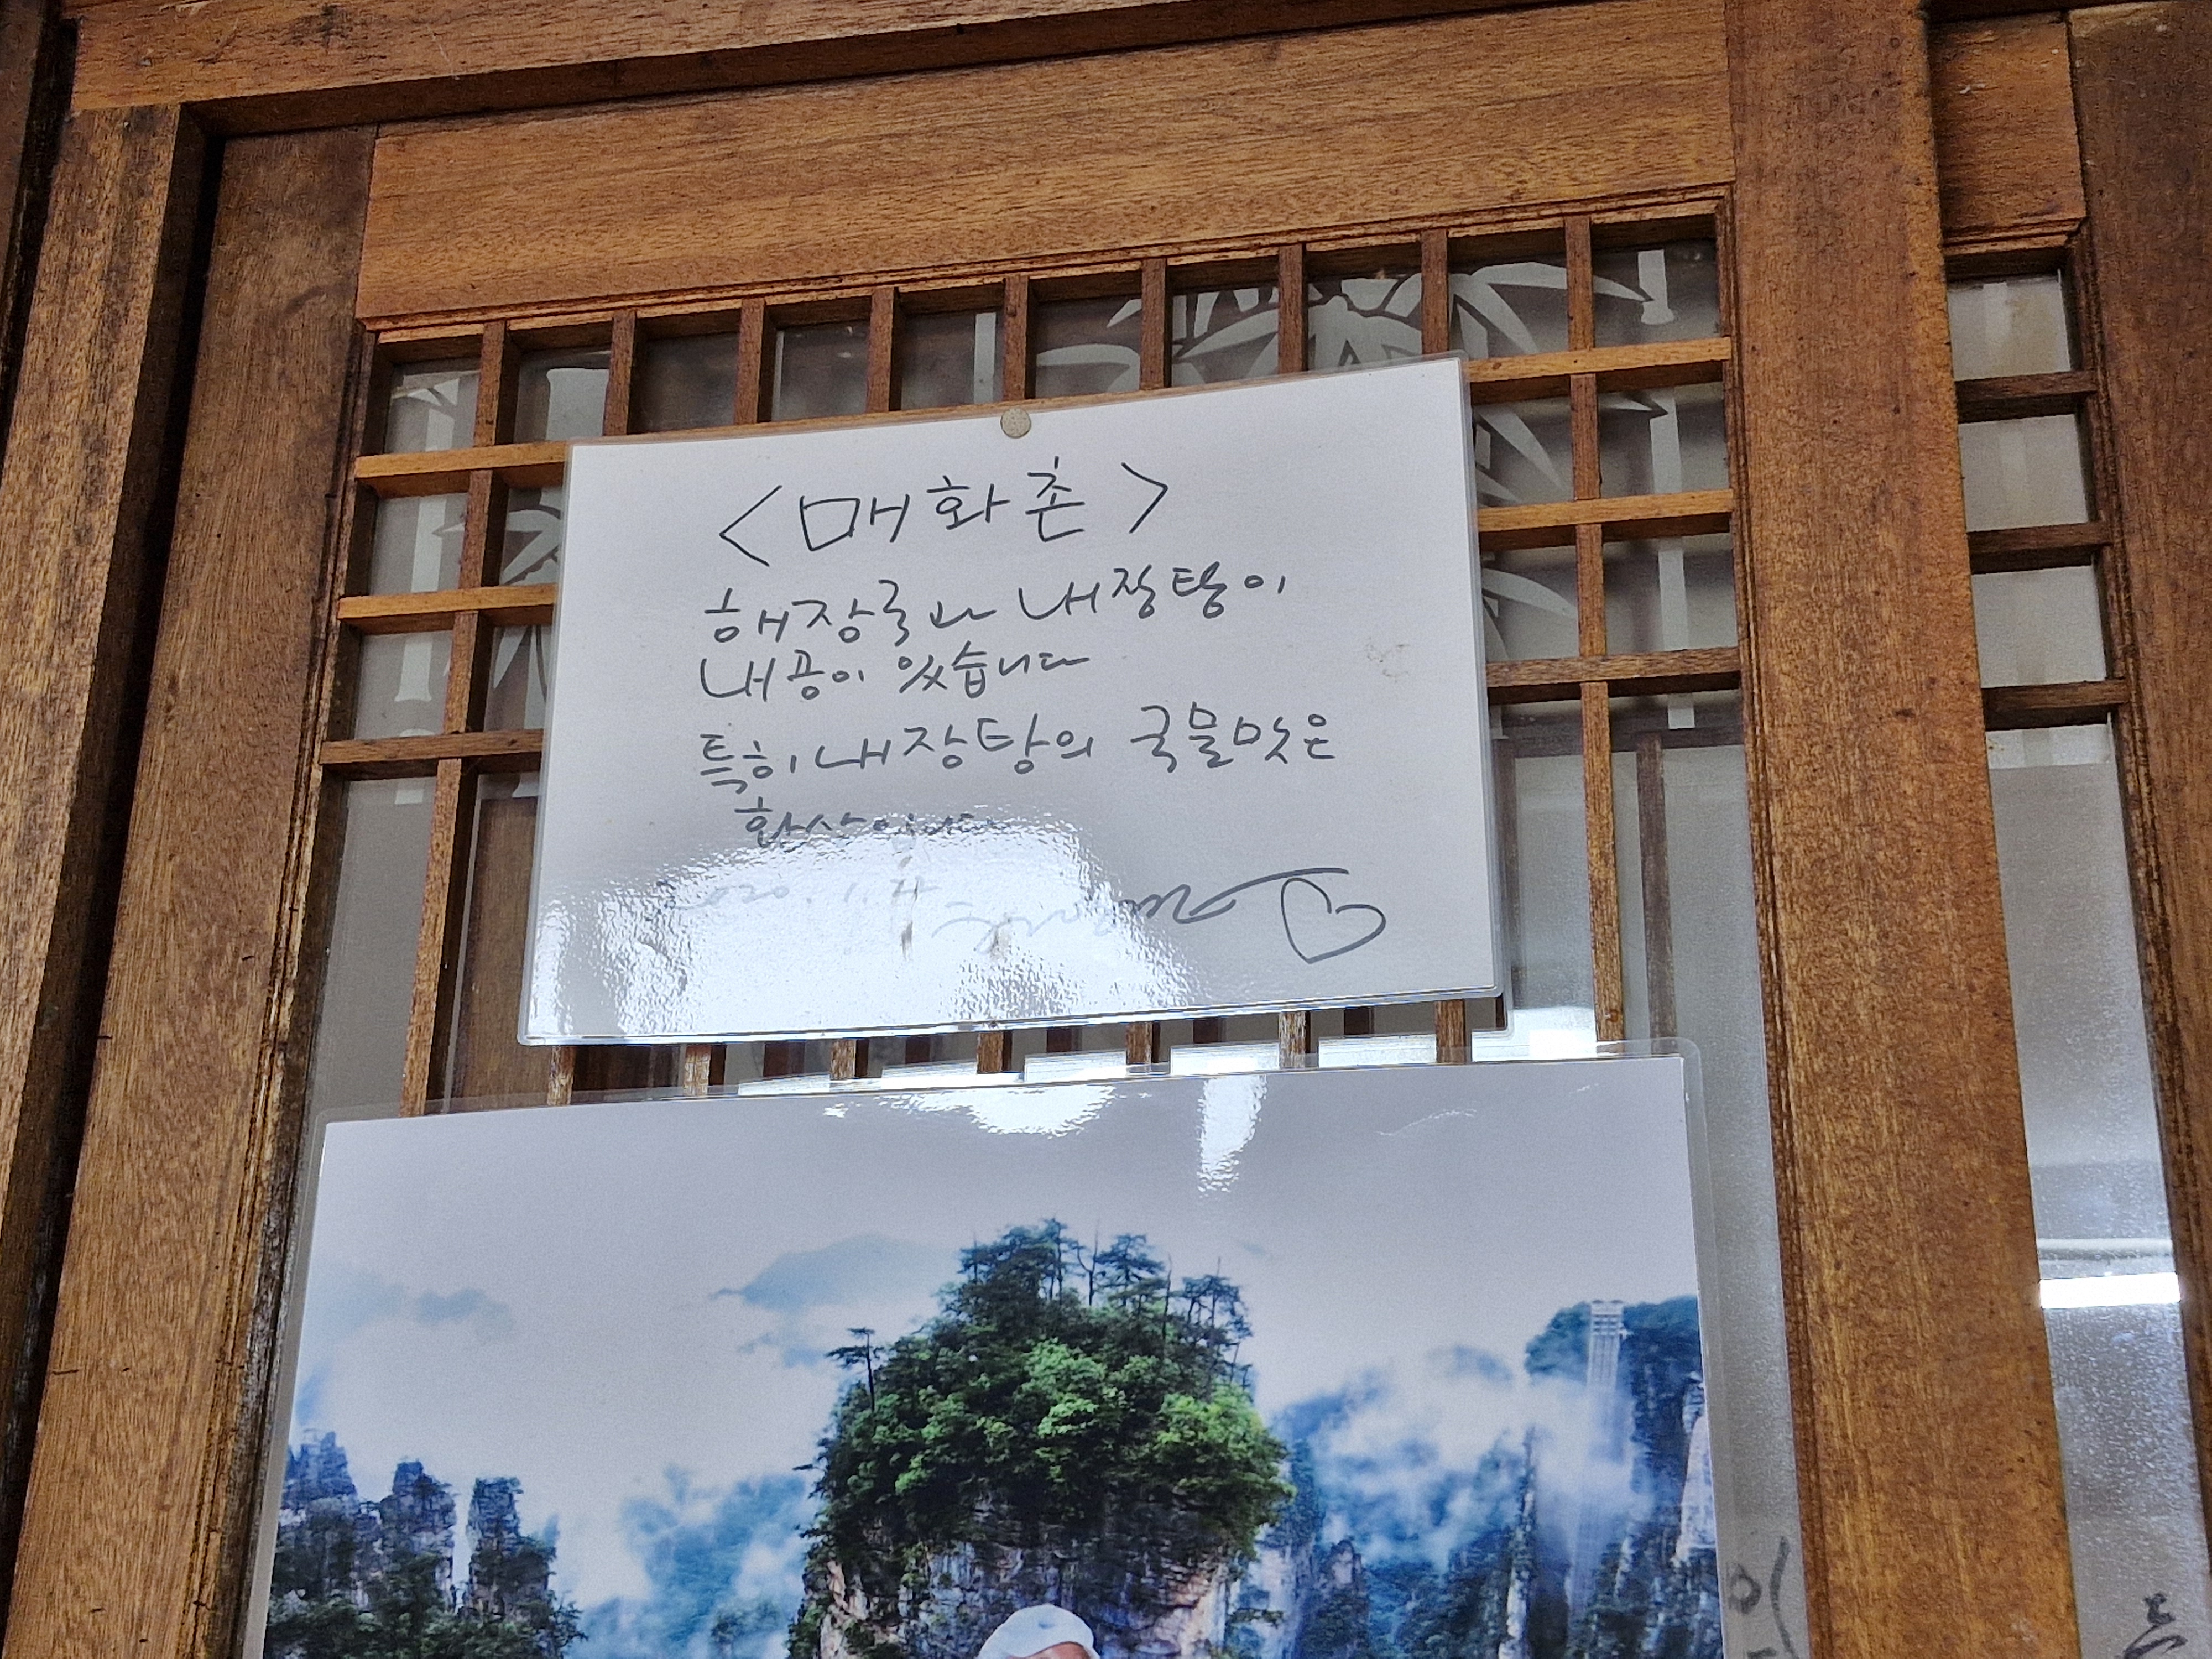 <매화촌>
해장국과 내장탕이
내공이 있습니다
특히 내장탕의 국물맛은
환상입니다
2020. 1.